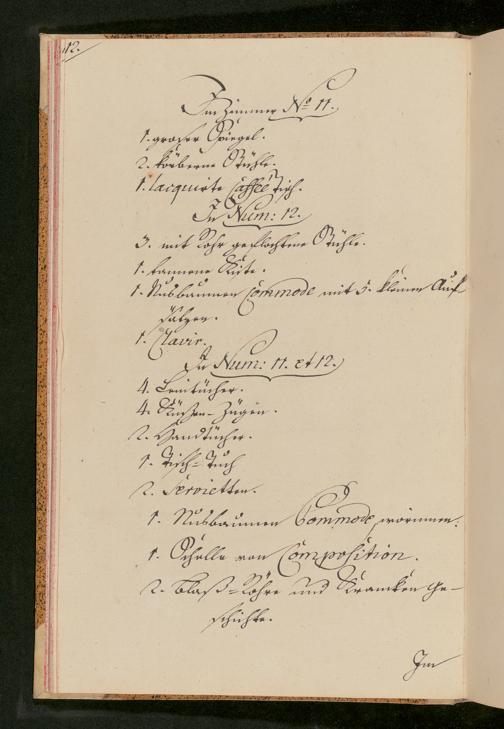 12.
Im Zimmer No. 11.
1. groser Spiegel.
2. körberne Stühle.
1. lacquirte Caffée Tisch.
In Num: 12.
3. mit Rohr geflochtene Stühle.
1. tannene Kiste.
1. Nusbaumen Commode mit 5. kleinen Auf-
sätzen.
1. Clavir.
In Num: 11. et 12.
4. Leintücher.
4. Küßen-Zügen.
2. Handtücher.
1. Tisch-Tuch
2. Servietten.
1. Nusbaumen Commode, worinnen:
1. Schelle von Composition.
2. Blaß-Röhre und Krancken Ge-
schichte.
Im